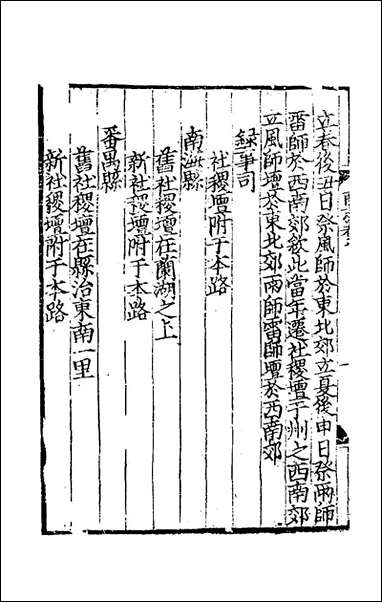 立春後丑日祭風師於東北郊立夏後申日祭雨師
雷師於西南郊欽此當年遷社稷壇于州之西南郊
立風師壇於東北郊雨師雷師壇於西南郊
錄事司
社稷壇附于本路
南海縣
舊社稷壇在蘭湖之上
新社稷壇附于本路
番禺縣
舊社稷壇在縣治東南一里
新社稷壇附于本路